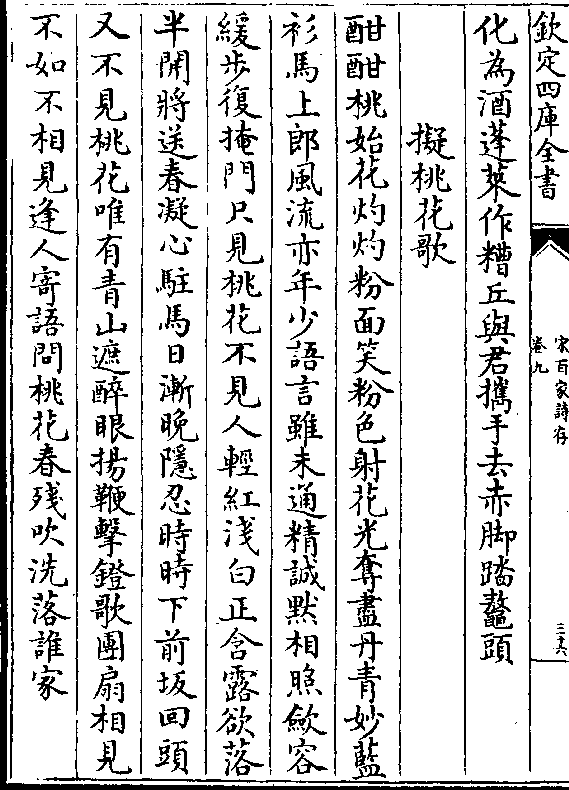 欽定四庫全書
宋百家詩存
卷九
三十六
化為酒蓬萊作糟丘與君攜手去赤脚踏鼇頭
擬桃花歌
酣酣桃始花灼灼粉面笑粉色射花光奪盡丹青妙藍
衫馬上郎風流亦年少語言雖未通精誠默相照斂容
緩步復掩門只見桃花不見人輕紅浅白正含露欲落
半開將送春凝心駐馬日漸晚隱忍時時下前坂回頭
又不見桃花唯有青山遮醉眼揚鞭擊鐙歌團扇相見
不如不相見逢人寄語問桃花春殘吹洗落誰家